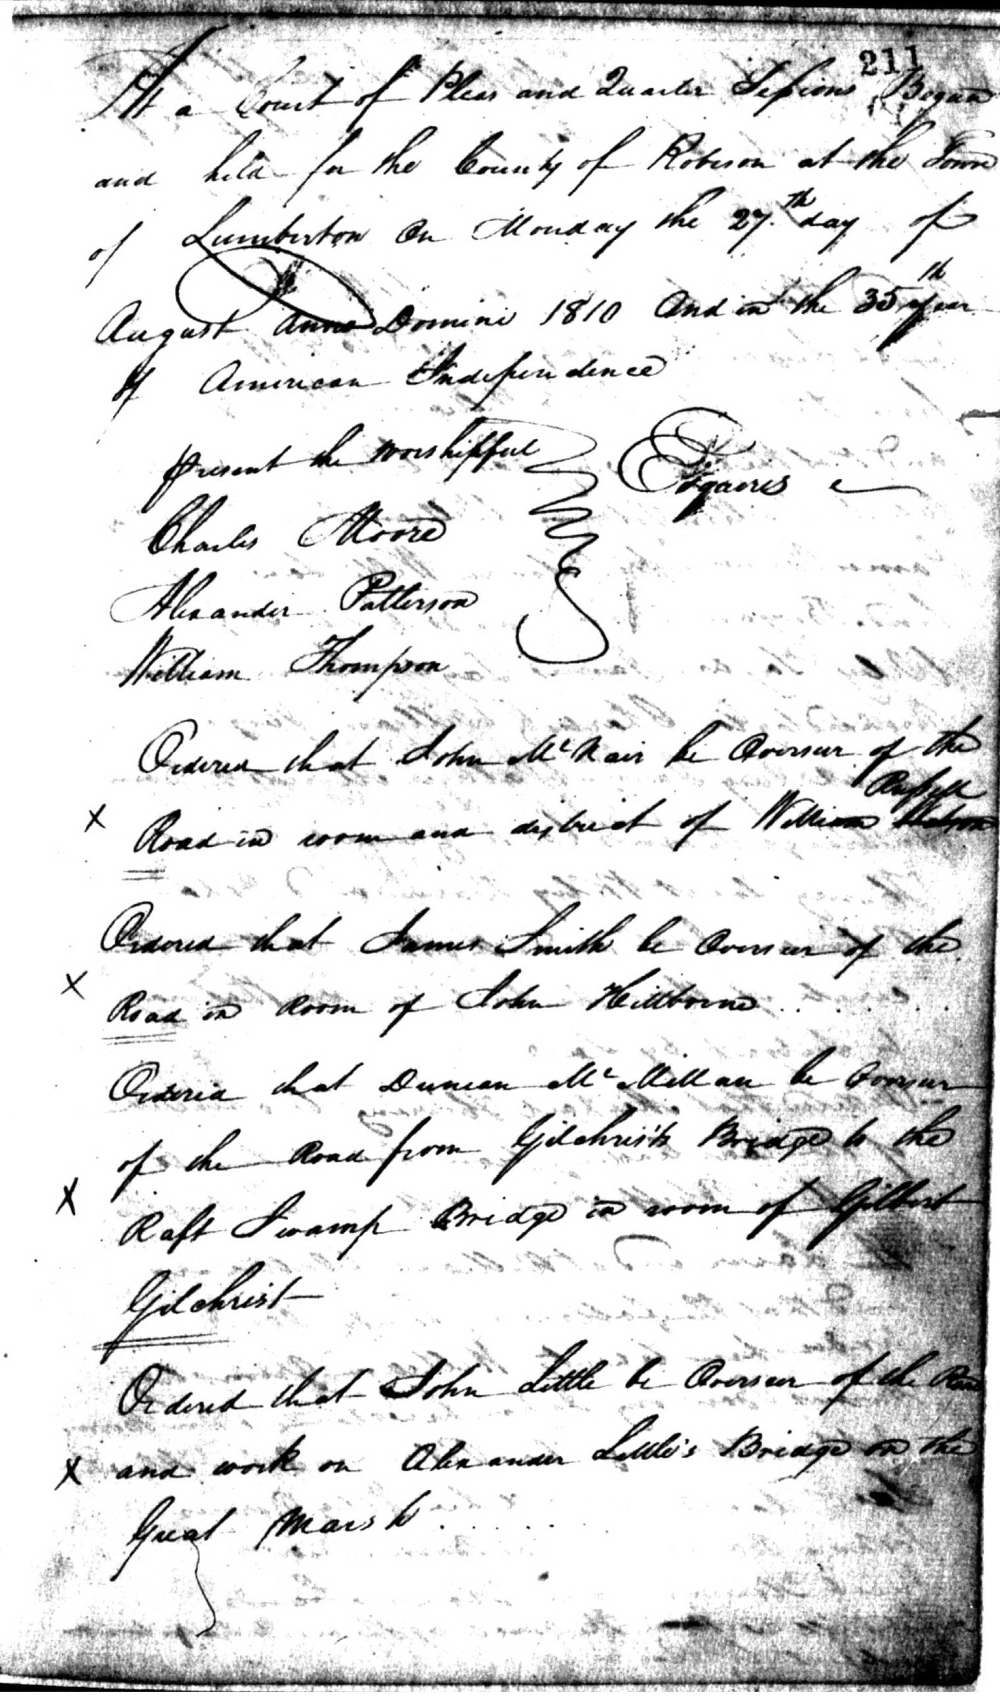 211
At a Court of Pleas and Quarter Sessions Began
and held for the County of Robeson at the Town
of Lumberton On Monday the 27.th day of
August Anno Domini 1810 And in the 35th year
of American Independence
present the worshipfull Esquires
Charles Moore
Alexander Patterson
William Thompson
Ordered that John McNair be Overseer of the
Russell
X Road in room and district of William
Ordered that James Smith be Overseer of the
X Road in Room of John Hillborne
Ordered that Duncan McMillan be Overseer
of the Road from Gilchrists Bridge to the
X Raft Swamp Bridge in room of Gilbert
Gilchrist
Ordered that John Little be Overseer of the Road
X and work on Alexander Little's Bridge on the
Great Marsh